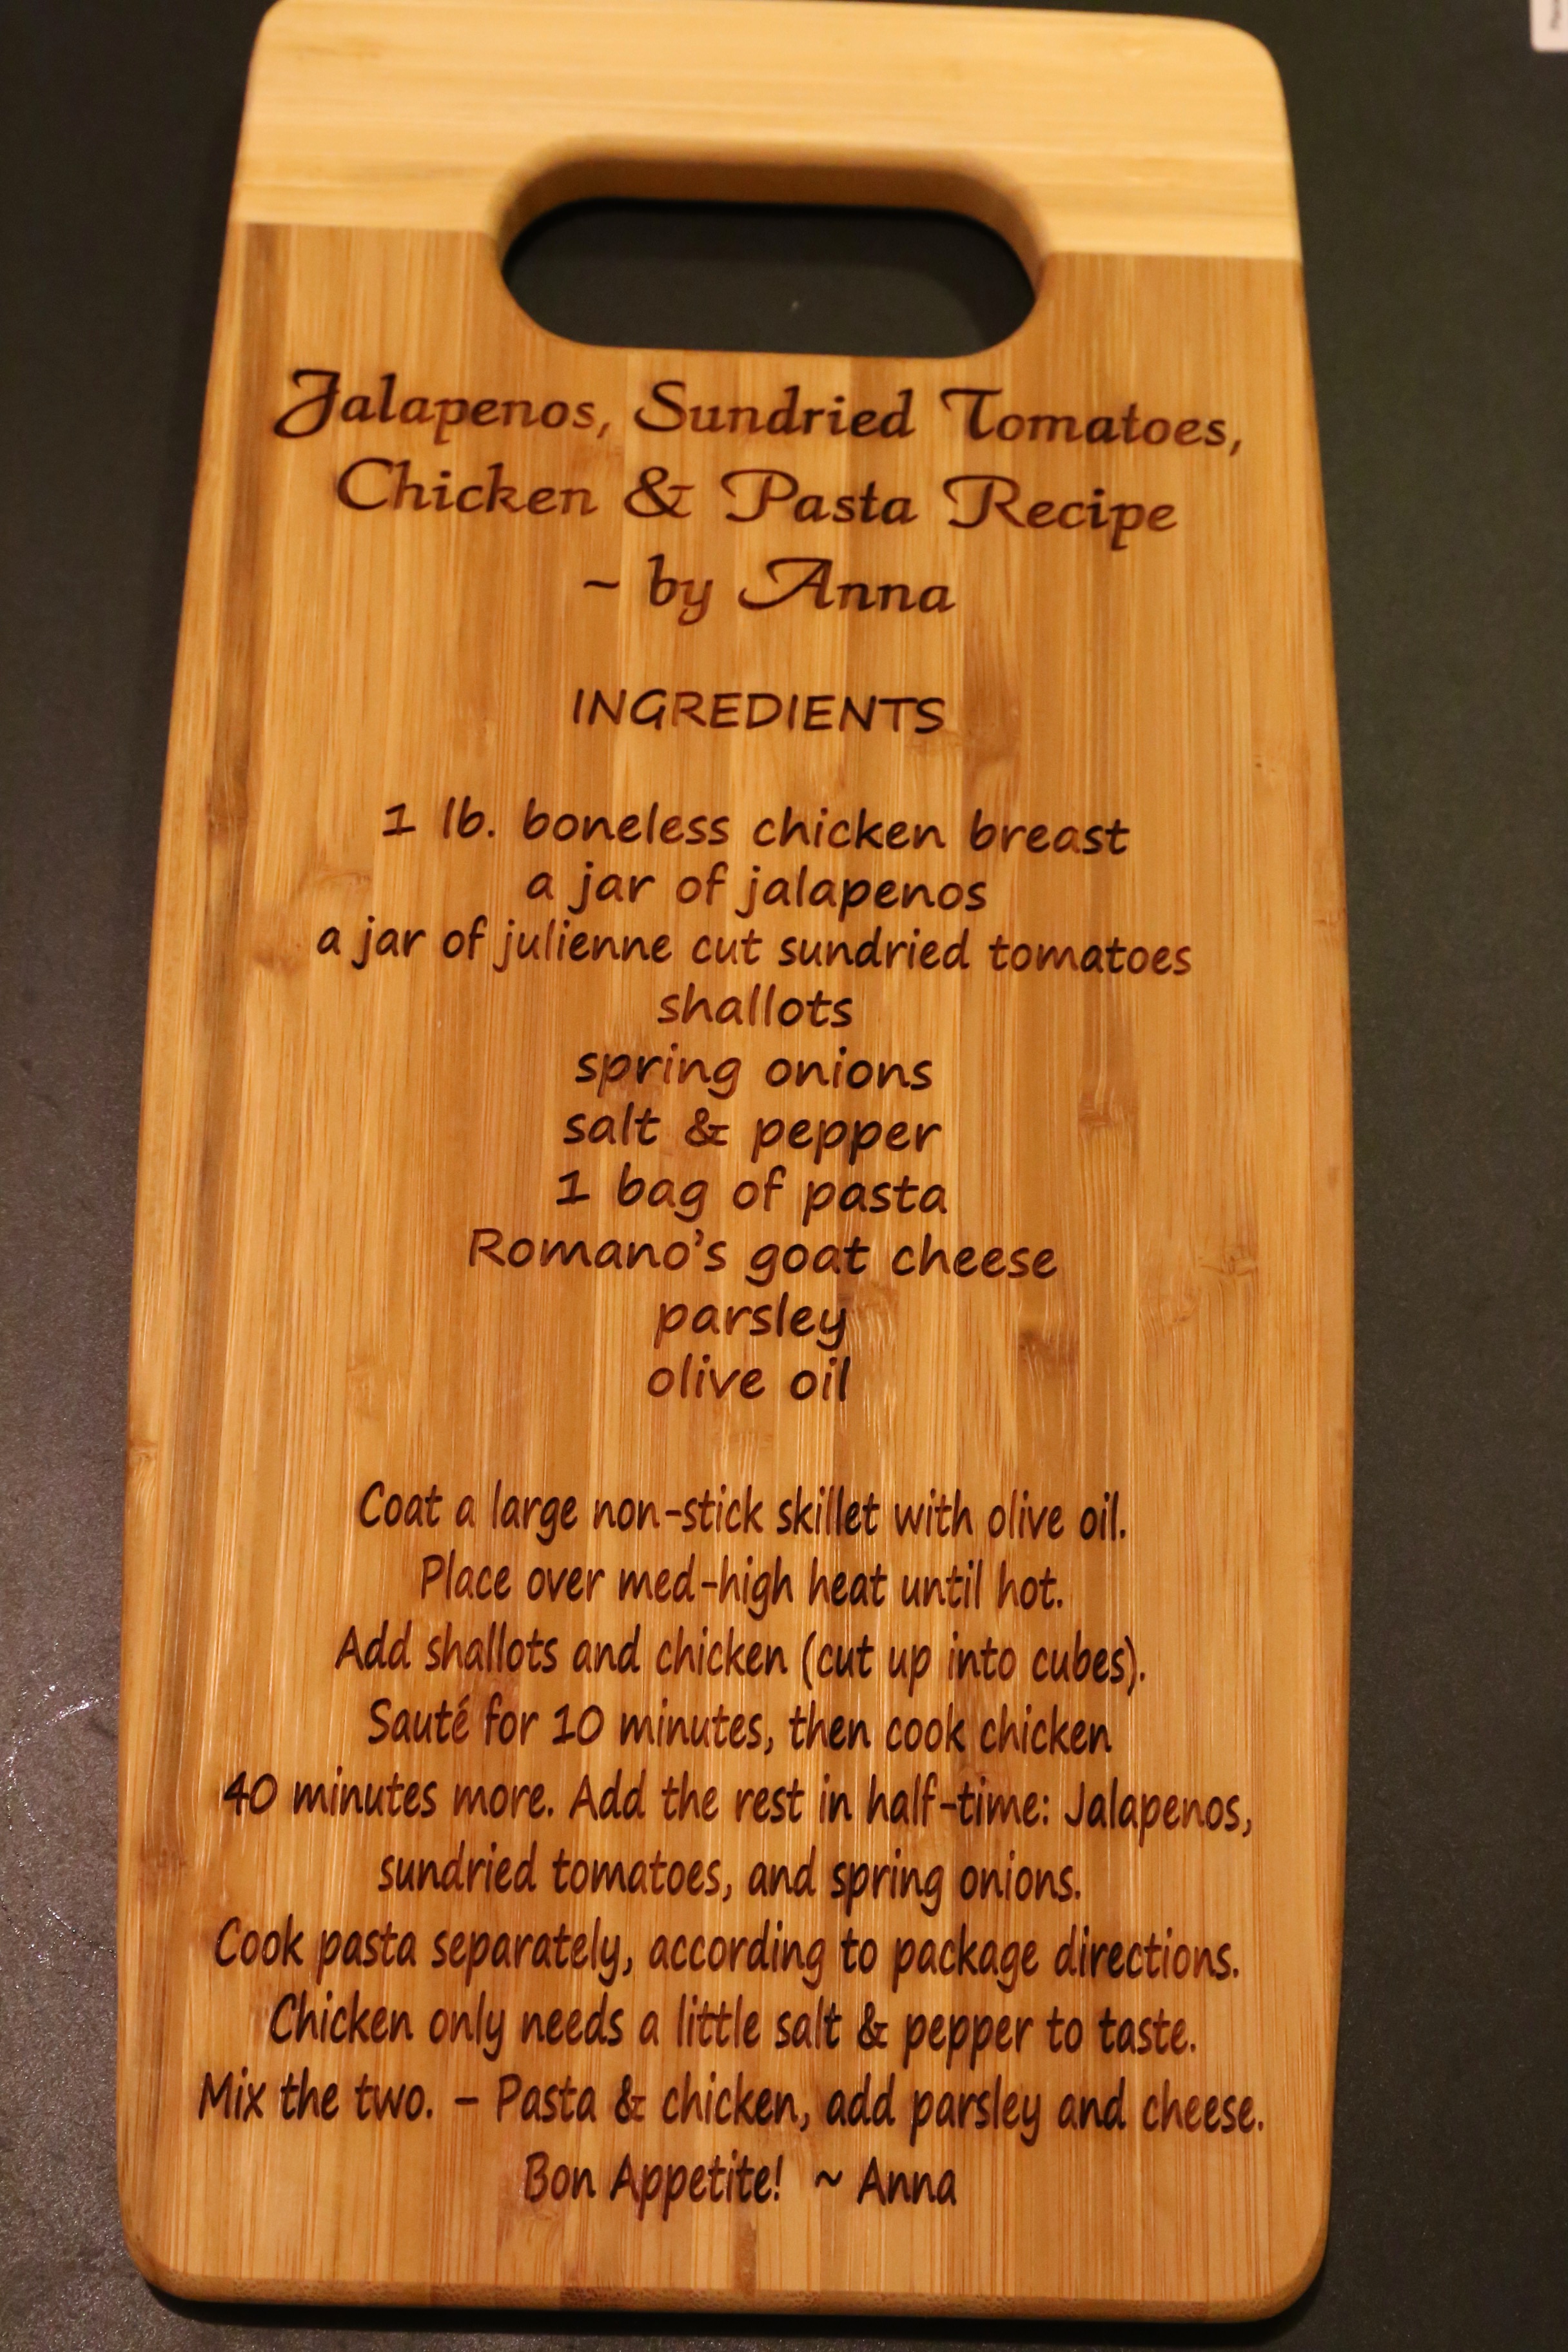 Jalapenos, Sundried Tomatoes,
Chicken & Pasta Recipe
~ by Anna
INGREDIENTS
1 lb. boneless chicken breast
a jar of jalapenos
a jar of julienne cut sundried tomatoes
shallots
spring onions
salt & pepper
1 bag of pasta
Romano's goat cheese
parsley
olive oil
Coat a large non-stick skillet with olive oil.
Place over med-high heat until hot.
Add shallots and chicken (cut up into cubes).
Sauté for 10 minutes, then cook chicken
40 minutes more. Add the rest in half-time: Jalapenos,
sundried tomatoes, and spring onions.
Cook pasta separately, according to package directions.
Chicken only needs a little salt & pepper to taste.
Mix the two. – Pasta & chicken, add parsley and cheese.
Bon Appetite! ~ Anna